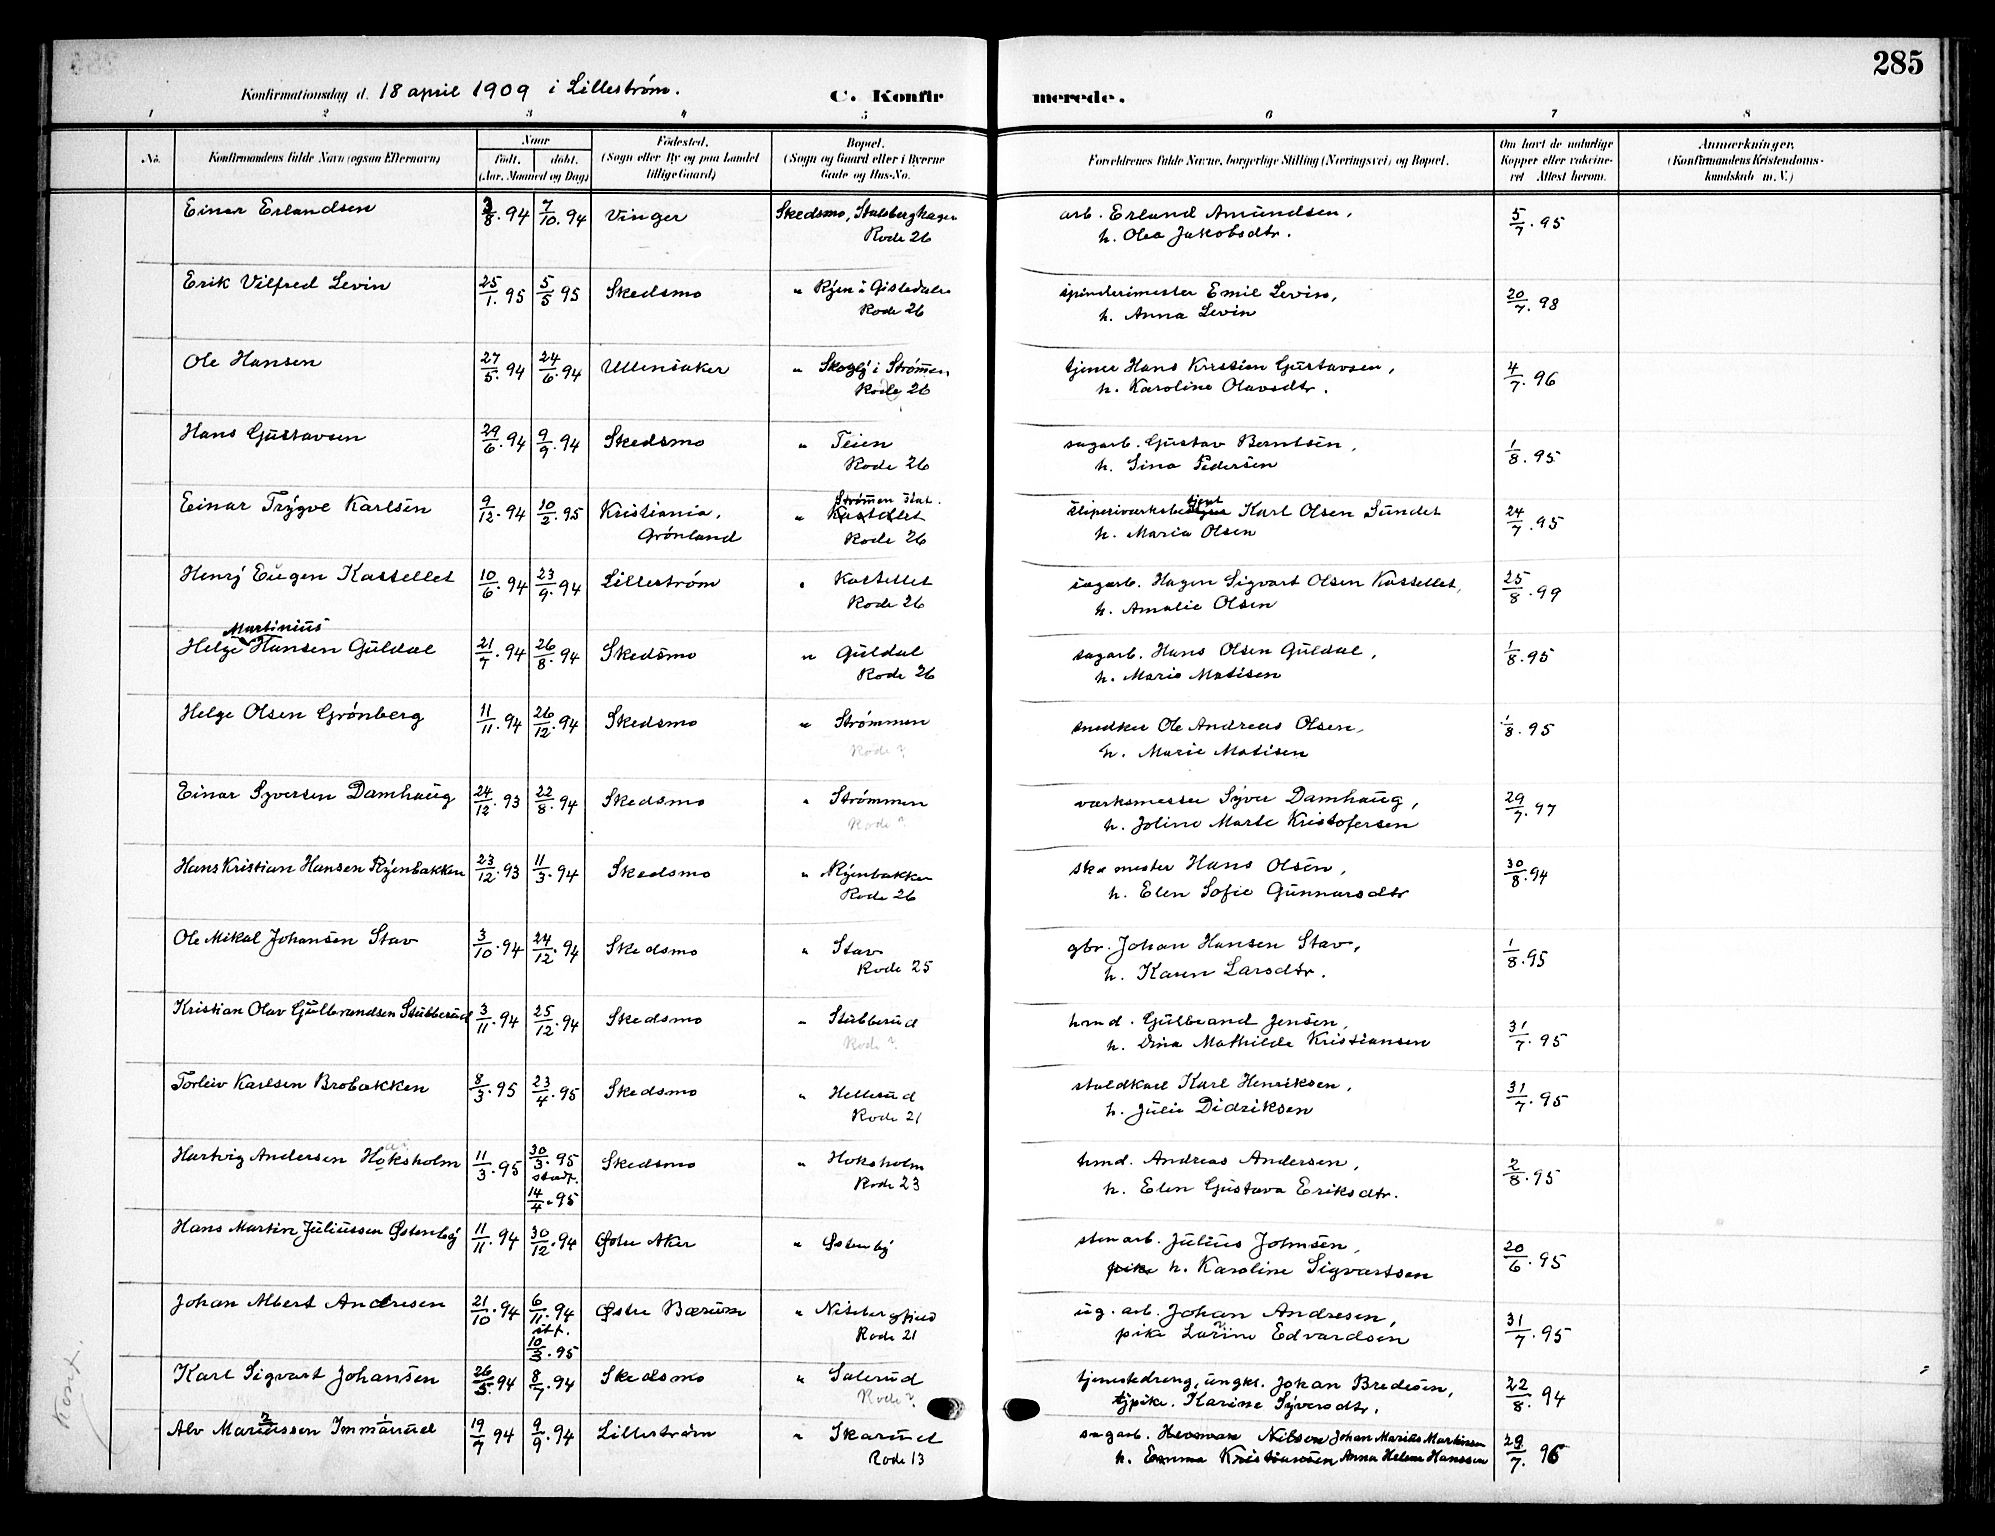 285
Konfirmationsdag d. 18 april 1909 i Lillestrøm.
C. Konfirmerede.
1 2 3 4 5 6 7 8
No. Konfirmandens fulde Navn (ogsaa Efternavn) Naar født. døbt. (Aar, Maaned og Dag) Fødested. (Sogn eller By og paa Landet tillige Gaard) Bopæl. (Sogn og Gaard eller i Byerne Gade og Hus-No. Forældrenes fulde Navne, borgerlige Stilling (Næringsvei) og Bopæl. Om havt de naturlige Kopper eller vakcineret Attest herom. Anmærkninger. (Konfirmandens Kristendomskundskab m. V.)
Einar Erlandsen 3/8. 94 7/10. 94 Vinger Skedsmo, Stalsberghagen arb. Erland Amundsen, 5/7. 95
Rode 26 h. Olea Jakobsdtr.
Erik Vilfred Levin 25/1. 95 5/5 95 Skedsmo " Ryen i Gisledalen spinderimester Emil Levin, 20/7. 98
Rode 26 h. Anna Levin
Ole Hansen 27/5. 94 24/6. 94 Ullensaker " Skoglý i Strømmen tjener Hans Kristian Gustavsen, 4/7. 96
Rode 26 h. Karoline Olavsdtr.
Hans Gustavsen 29/6. 94 9/9. 94 Skedsmo " Teien sagarb. Gustav Berntsen, 1/8. 95
Rode 26 h. Sina Pedersen
Einar Trygve Karlsen 9/12. 94 10/2. 95 Kristiania, Strømmen stat. " Kastellet sliperiværksbetjent Karl Olsen Sundet 24/7. 95
Grønland Rode 26 h. Maria Olsen
Henry Eugen Kastellet 10/6. 94 23/9. 94 Lillestrøm " Kastellet sagarb. Hagen Sigvart Olsen Kastellet, 25/8. 99
Rode 26 h. Amalie Olsen
Martinius
Helge Hansen Guldal 21/7. 94 26/8. 94 Skedsmo " Guldal sagarb. Hans Olsen Guldal, 1/8. 95
Rode 26 h. Marie Matisen
Helge Olsen Grønberg 11/11. 94 26/12. 94 Skedsmo " Strømmen snedker Ole Andreas Olsen, 1/8. 95
Rode ? h. Marie Matisen
Einar Syversen Damhaug 24/12 93 22/8. 94 Skedsmo " Strømmen værksmester Syver Damhaug, 29/7. 97
Rode ? h. Joline Marte Kristofersen
Hans Kristian Hansen Ryenbakken 23/12. 93 11/3. 94 Skedsmo " Ryenbakken mester Hans Olsen, 30/8. 94
Rode 26 h. Elen Sofie Gunnarsdtr
Ole Mikal Johansen Stav 3/10. 94 24/12. 94 Skedsmo " Stav gbr. Johan Hansen Stav, 1/8. 95
Rode 25 h. Karen Larsdtr.
Kristian Olav Gulbrandsen Stubberud 3/11. 94 25/12. 94 Skedsmo " Stubberud hmd. Gulbrand Jensen, 31/7. 95
Rode ? h. Dina Mathilde Kristiansen
Torleiv Karlsen Brobakken 8/3. 95 23/4. 95 Skedsmo " Hellerud staldkarl Karl Henriksen, 31/7. 95
Rode 21 h. Julie Didriksen
Hartvig Andersen Hoksholm 11/3. 95 30/3. 95 Skedsmo " Hoksholm hmd. Andreas Andersen, 2/8. 95
stadf. 14/4. 95 Rode 23 h. Elen Gustava Eriksdtr.
Hans Martin Juliussen Østenby 11/11. 94 30/12. 94 Østre Aker " Østenby stenarb. Julius Johnsen, 20/6. 95
pike h. Karoline Sigvartsen
Johan Albert Andresen 21/10. 94 6/11. 94 Østre Bærum " Nitebergfjeld ug. arb. Johan Andresen, 31/7. 95
stf. 10/3. 95 Rode 21 pike Lorine Edvardsen
Karl Sigvart Johansen 26/5 94 8/7. 94 Skedsmo " Salerud tjenestedreng, ungk. Johan Bredesen, 22/8. 94
Rode ? tjpike. Karine Syversdtr.
Alv Mariussen Immarud 19/7 94 9/9. 94 Lillestrøm " Skarud sagarb. Herman Nilsen Johan Marius Martinsen 29/7. 96
Rode 13 h. Emma Kristiansen Anna Helene Hanssen
Kont.